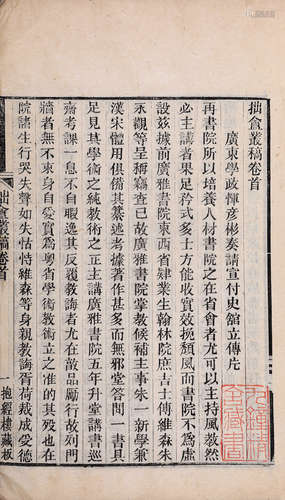 拙盦叢稿卷首
廣東學政惲彥彬奏請宣付史館立傳片
再書院所以培養人材書院之在省會者尤可以主持風教然
必主講者果足矜式多士方能收實效挽頹風而書院不為虛
設茲據前廣雅書院東西省肄業生翰林院庶吉士傅維森朱
永觀等呈稱竊查已故廣雅書院掌教候補主事朱一新學兼
漢宋體用俱備其纂述考據著作甚多而無邪堂答問一書具
足見其學術之純教術之正主講廣雅書院五年升堂講書巡
齋考課一息不自暇逸其反覆教誨者尤在敦品勵行故列門
牆者無不束身自愛實爲粵省學術教術立之準的其歿也在
院諸生行哭失聲如失怙恃維森等身親教誨胥荷裁成受德
拙盦叢稿卷首
一
抱經樓藏板
九鐘精舍藏書